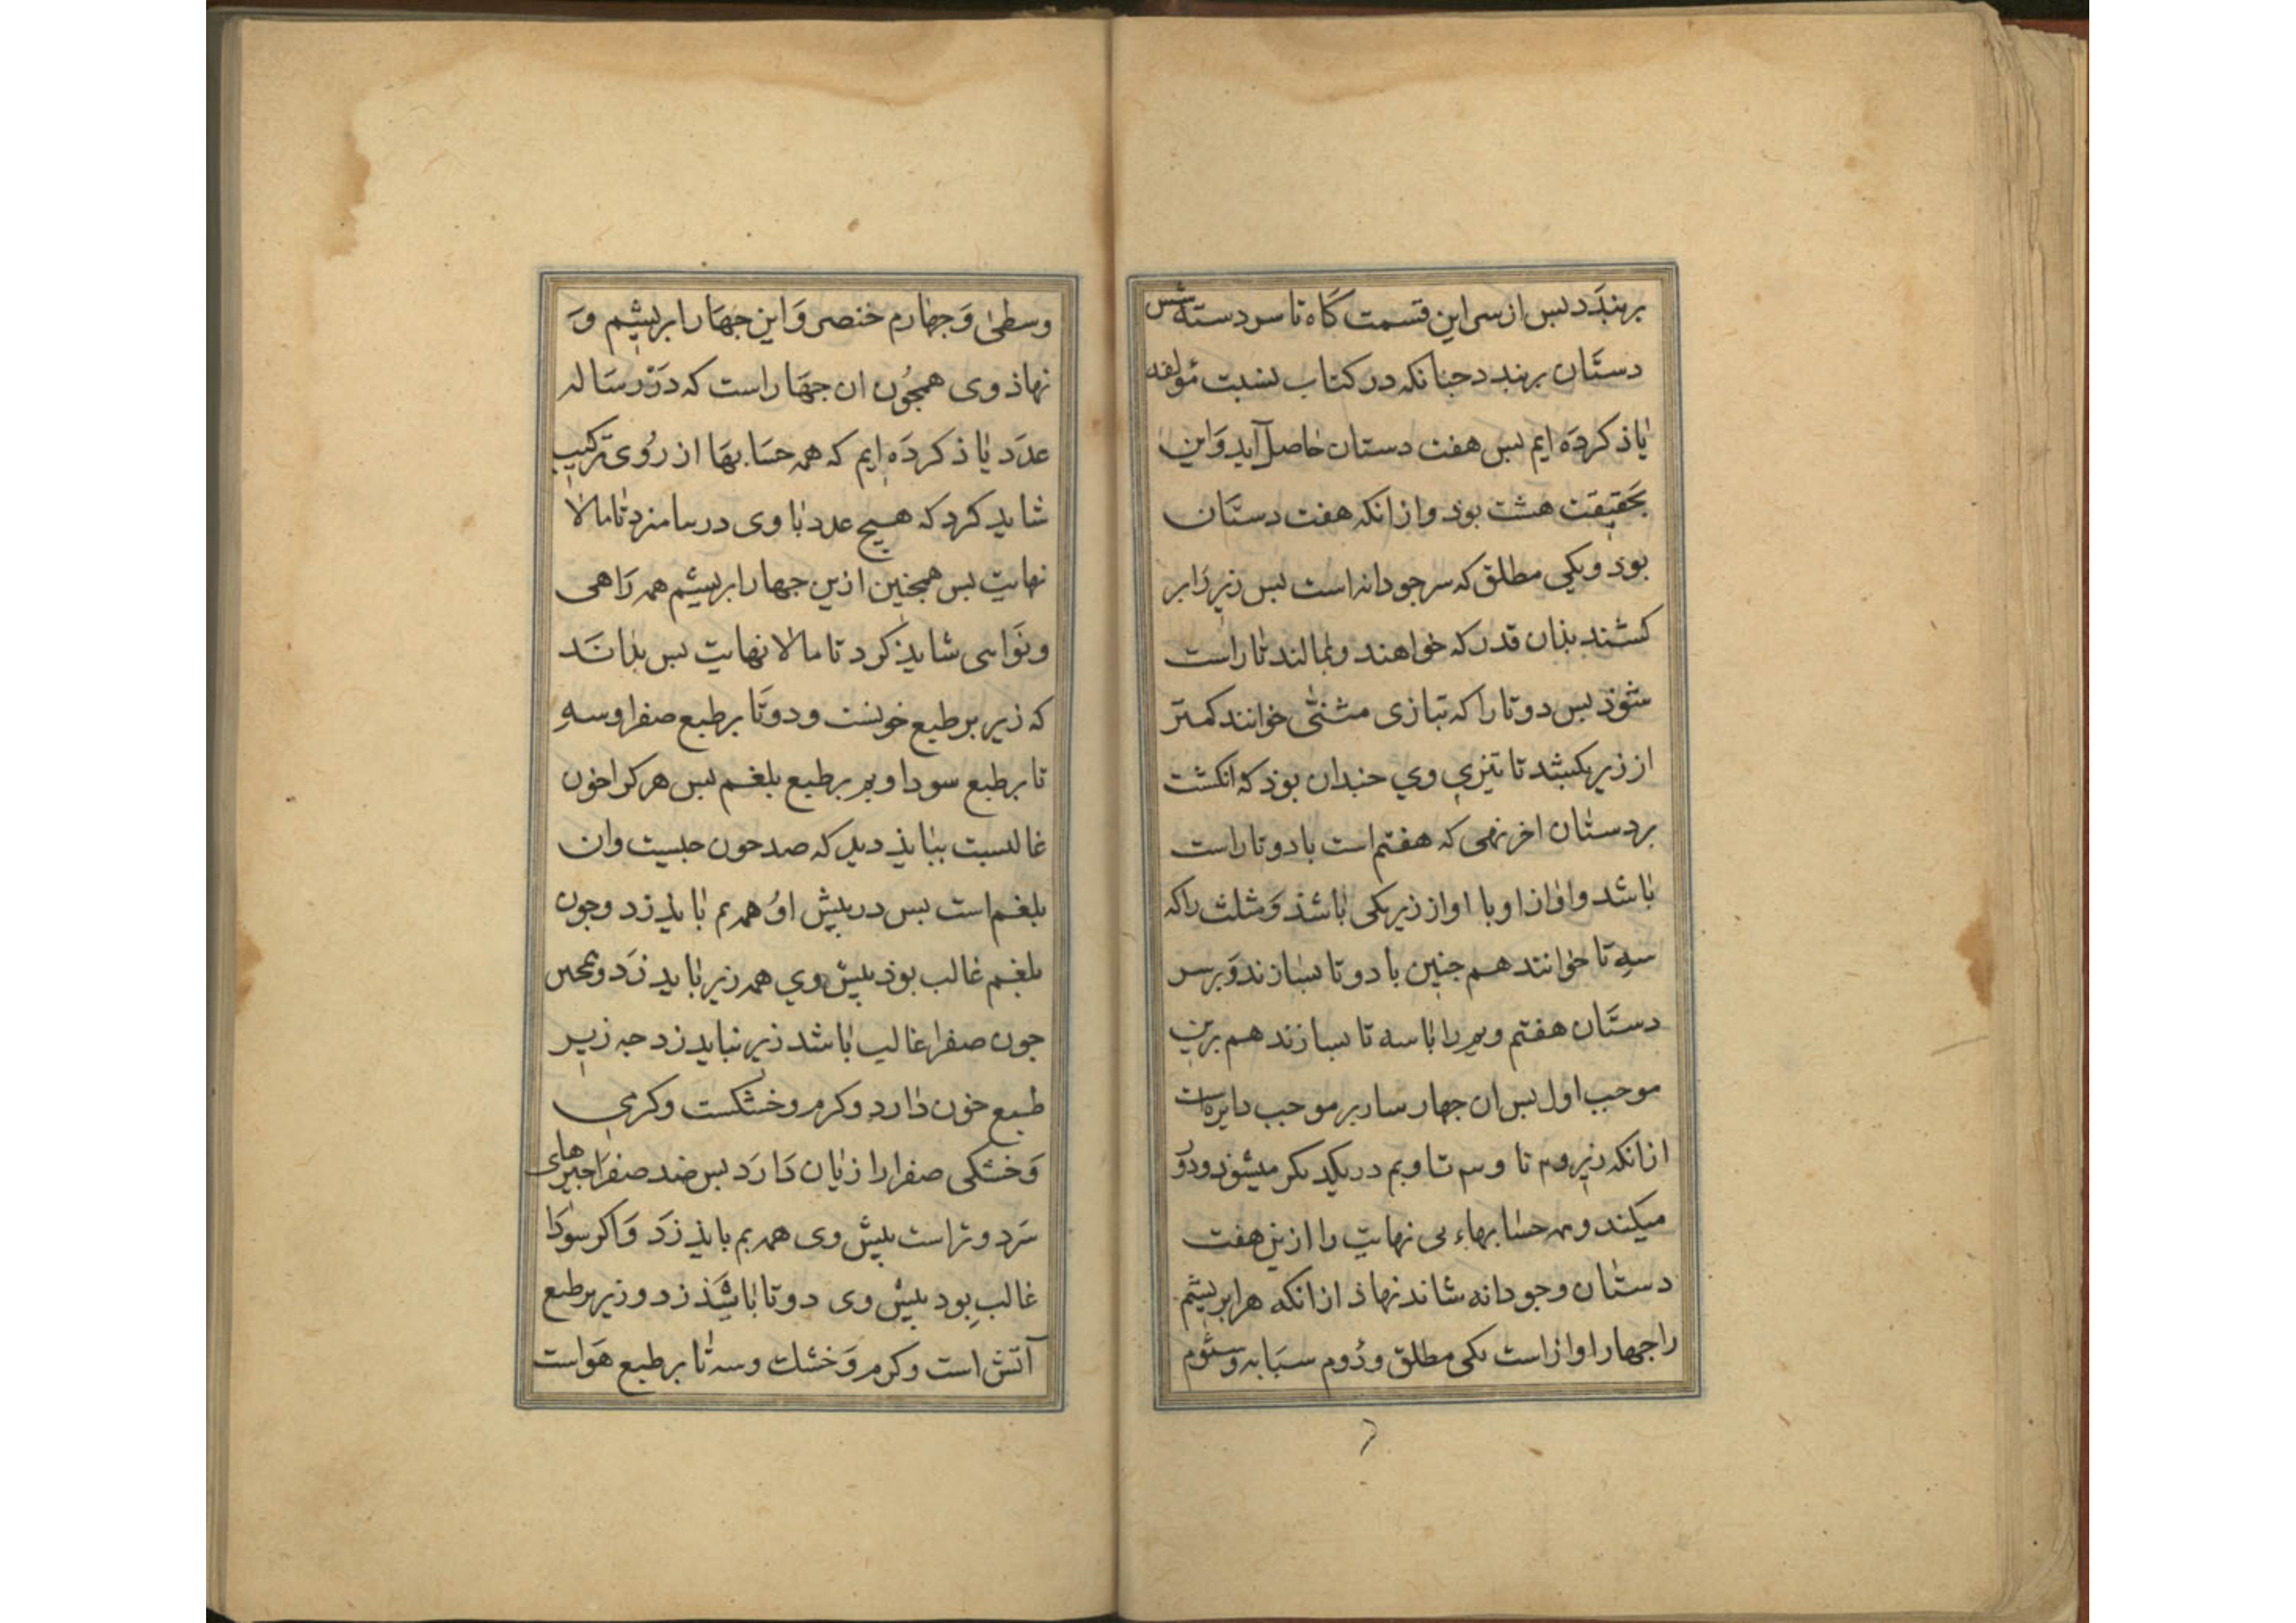 بربندد بس از سر این قسمت کاه تا سر دسته شش
دستان بربندد جنانکه در کتاب نسبت مؤلفه
یاذ کرده ایم بس هفت دستان حاصل آید و این
بحقیقت هشت بوذ و از انکه هفت دستان
بوذ و یکی مطلق که سر جودانه است بس زیر را بر
کشند بذان قدر که خواهند و بمالند تا راست
شوذ بس دوتا را که بتازی مثنی خوانند کمتر
از زیر بکشد تا تیزی وی جندان بوذ که انکشت
بر دستان اخر نهی که هفتم است با دوتا راست
باشد و اواز او با اواز زیر یکی باشذ و مثلث را که
سه تا خوانند هم جنین با دوتا بسازند و بر سر
دستان هفتم و بم را با سه تا بسازند هم برین
موجب اول بس ان جهار بر موجب دایره است
از انکه زیر و تا و سه تا و بم در یکدیکر میشوذ و دو
میکند و همه حسابهاء بی نهایت را ازین هفت
دستان و جودانه شاند نهاذ از انکه هر ابریشم
را جهار اواز است یکی مطلق و دوم سبابه و سئوم
وسطی و جهارم خنصر و این جهار ابریشم و
نهاذ وی همجون ان جهار است که در رساله
عدد یاذ کرده ایم که همه حسابها از روی ترکیب
شاید کرد که هیج عدد با وی در تا مالا
نهایت بس همجنین ازین جهار ابریشم همه راهی
و نوایی شایذ کرد تا مالا نهایت بس بدانند
که زیر بر طبع خونست و دوتا بر طبع صفرا و سه
تا بر طبع سودا و بم بر طبع بلغم بس هر کرا خون
غالبست ببایذ دید که ضد خون جیست وان
بلغم است بس در بیش او همه بم بایذ زد و جون
بلغم غالب بوذ بیش وی همه زیر باید زد و همجنین
جون صفرا غالب باشد زیر نباید زد جه زیر
طبع خون دارد و کرم و خشکست و کرمی
و خشکی صفرا را زیان دارد بس ضد صفرا جیزهای
سرد و تر است بیش وی همه بم بایذ زد و اکر سودا
غالب بود بیش وی دوتا باشذ زد و زیر بر طبع
آتش است و کرم و خشک و سه تا بر طبع هواست